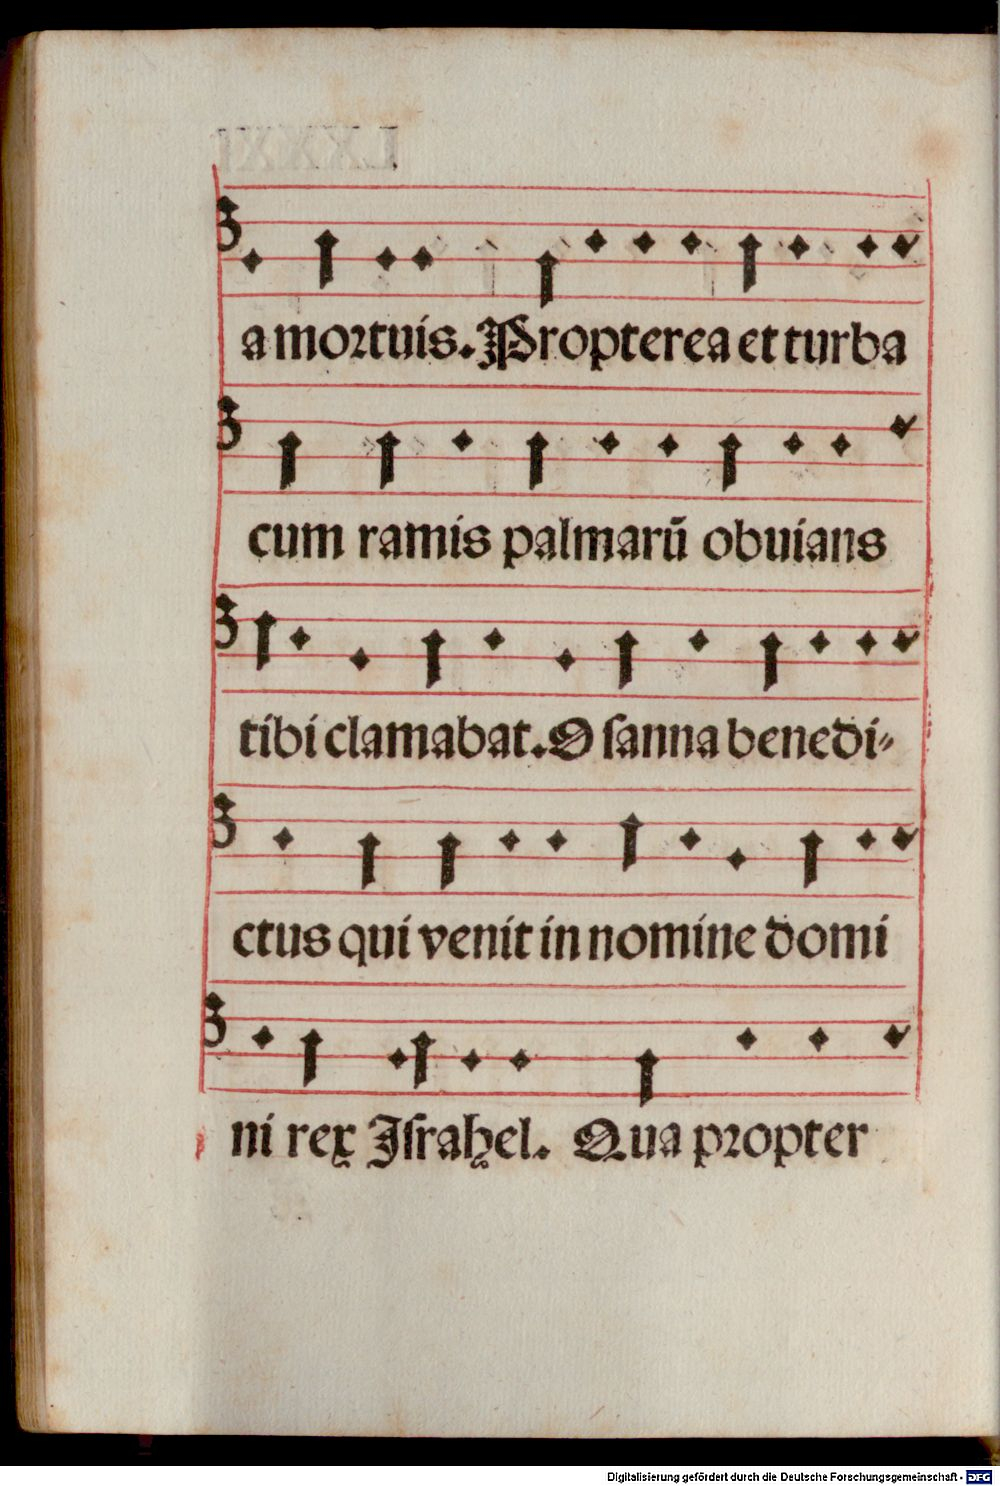 LXXXI
a mortuis. Propterea et turba
cum ramis palmarū obuians
tibi clamabat. O sanna benedi-
ctus qui venit in nomine domi
ni rex Jsrahel. Qua propter
Digitalisierung gefördert durch die Deutsche Forschungsgemeinschaft - DFG